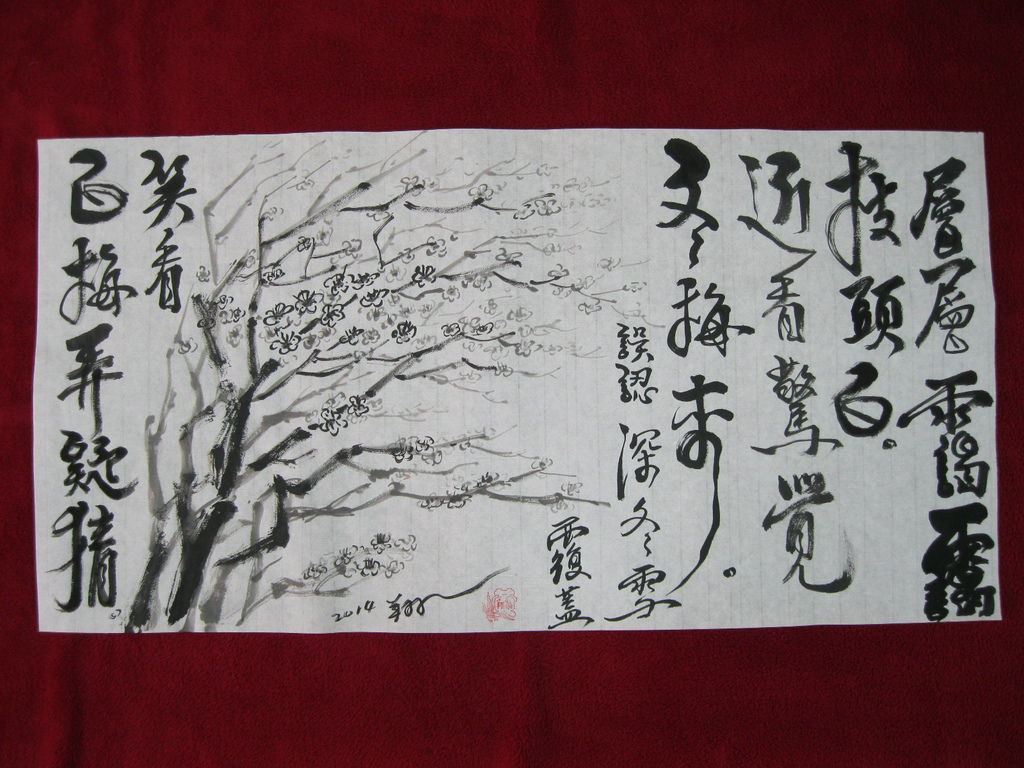 層層霭靄
枝頭白。
近香驚覺
又冬梅來。
誤認深冬雪
覆蓋
笑看
白梅弄疑猜
2014 翔